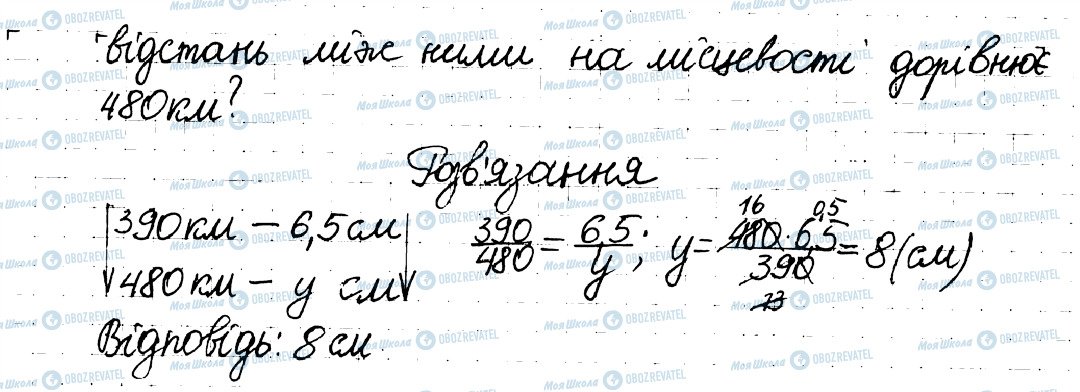 відстань між ними на місцевості дорівнює
480 км?
Розв'язання
390 км – 6,5 см
480 км – y см
390/480 = 6,5/y; y = 480·6,5/390 = 8 (см)
16 0,5
13
Відповідь: 8 см